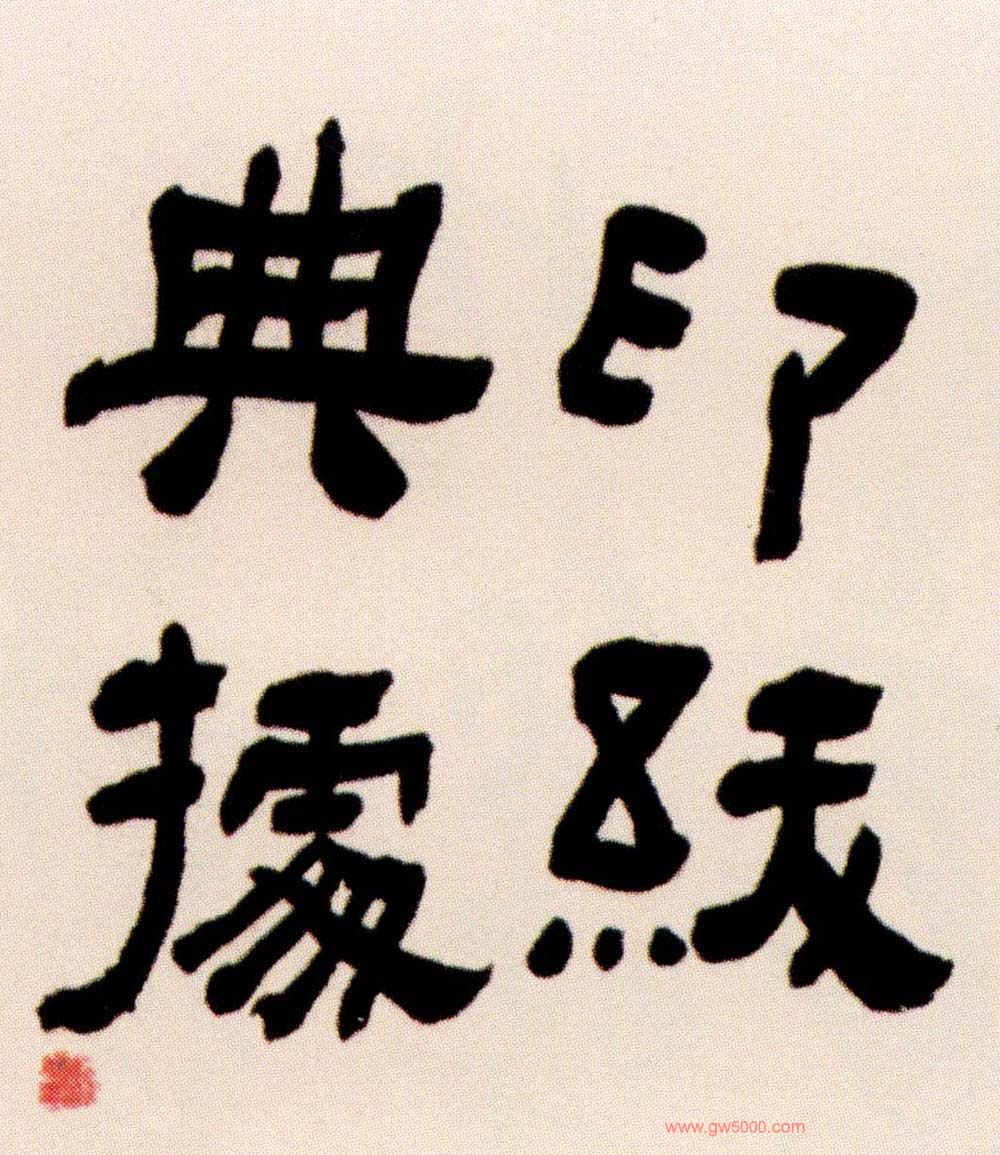 印紱
典據
www.gw5000.com